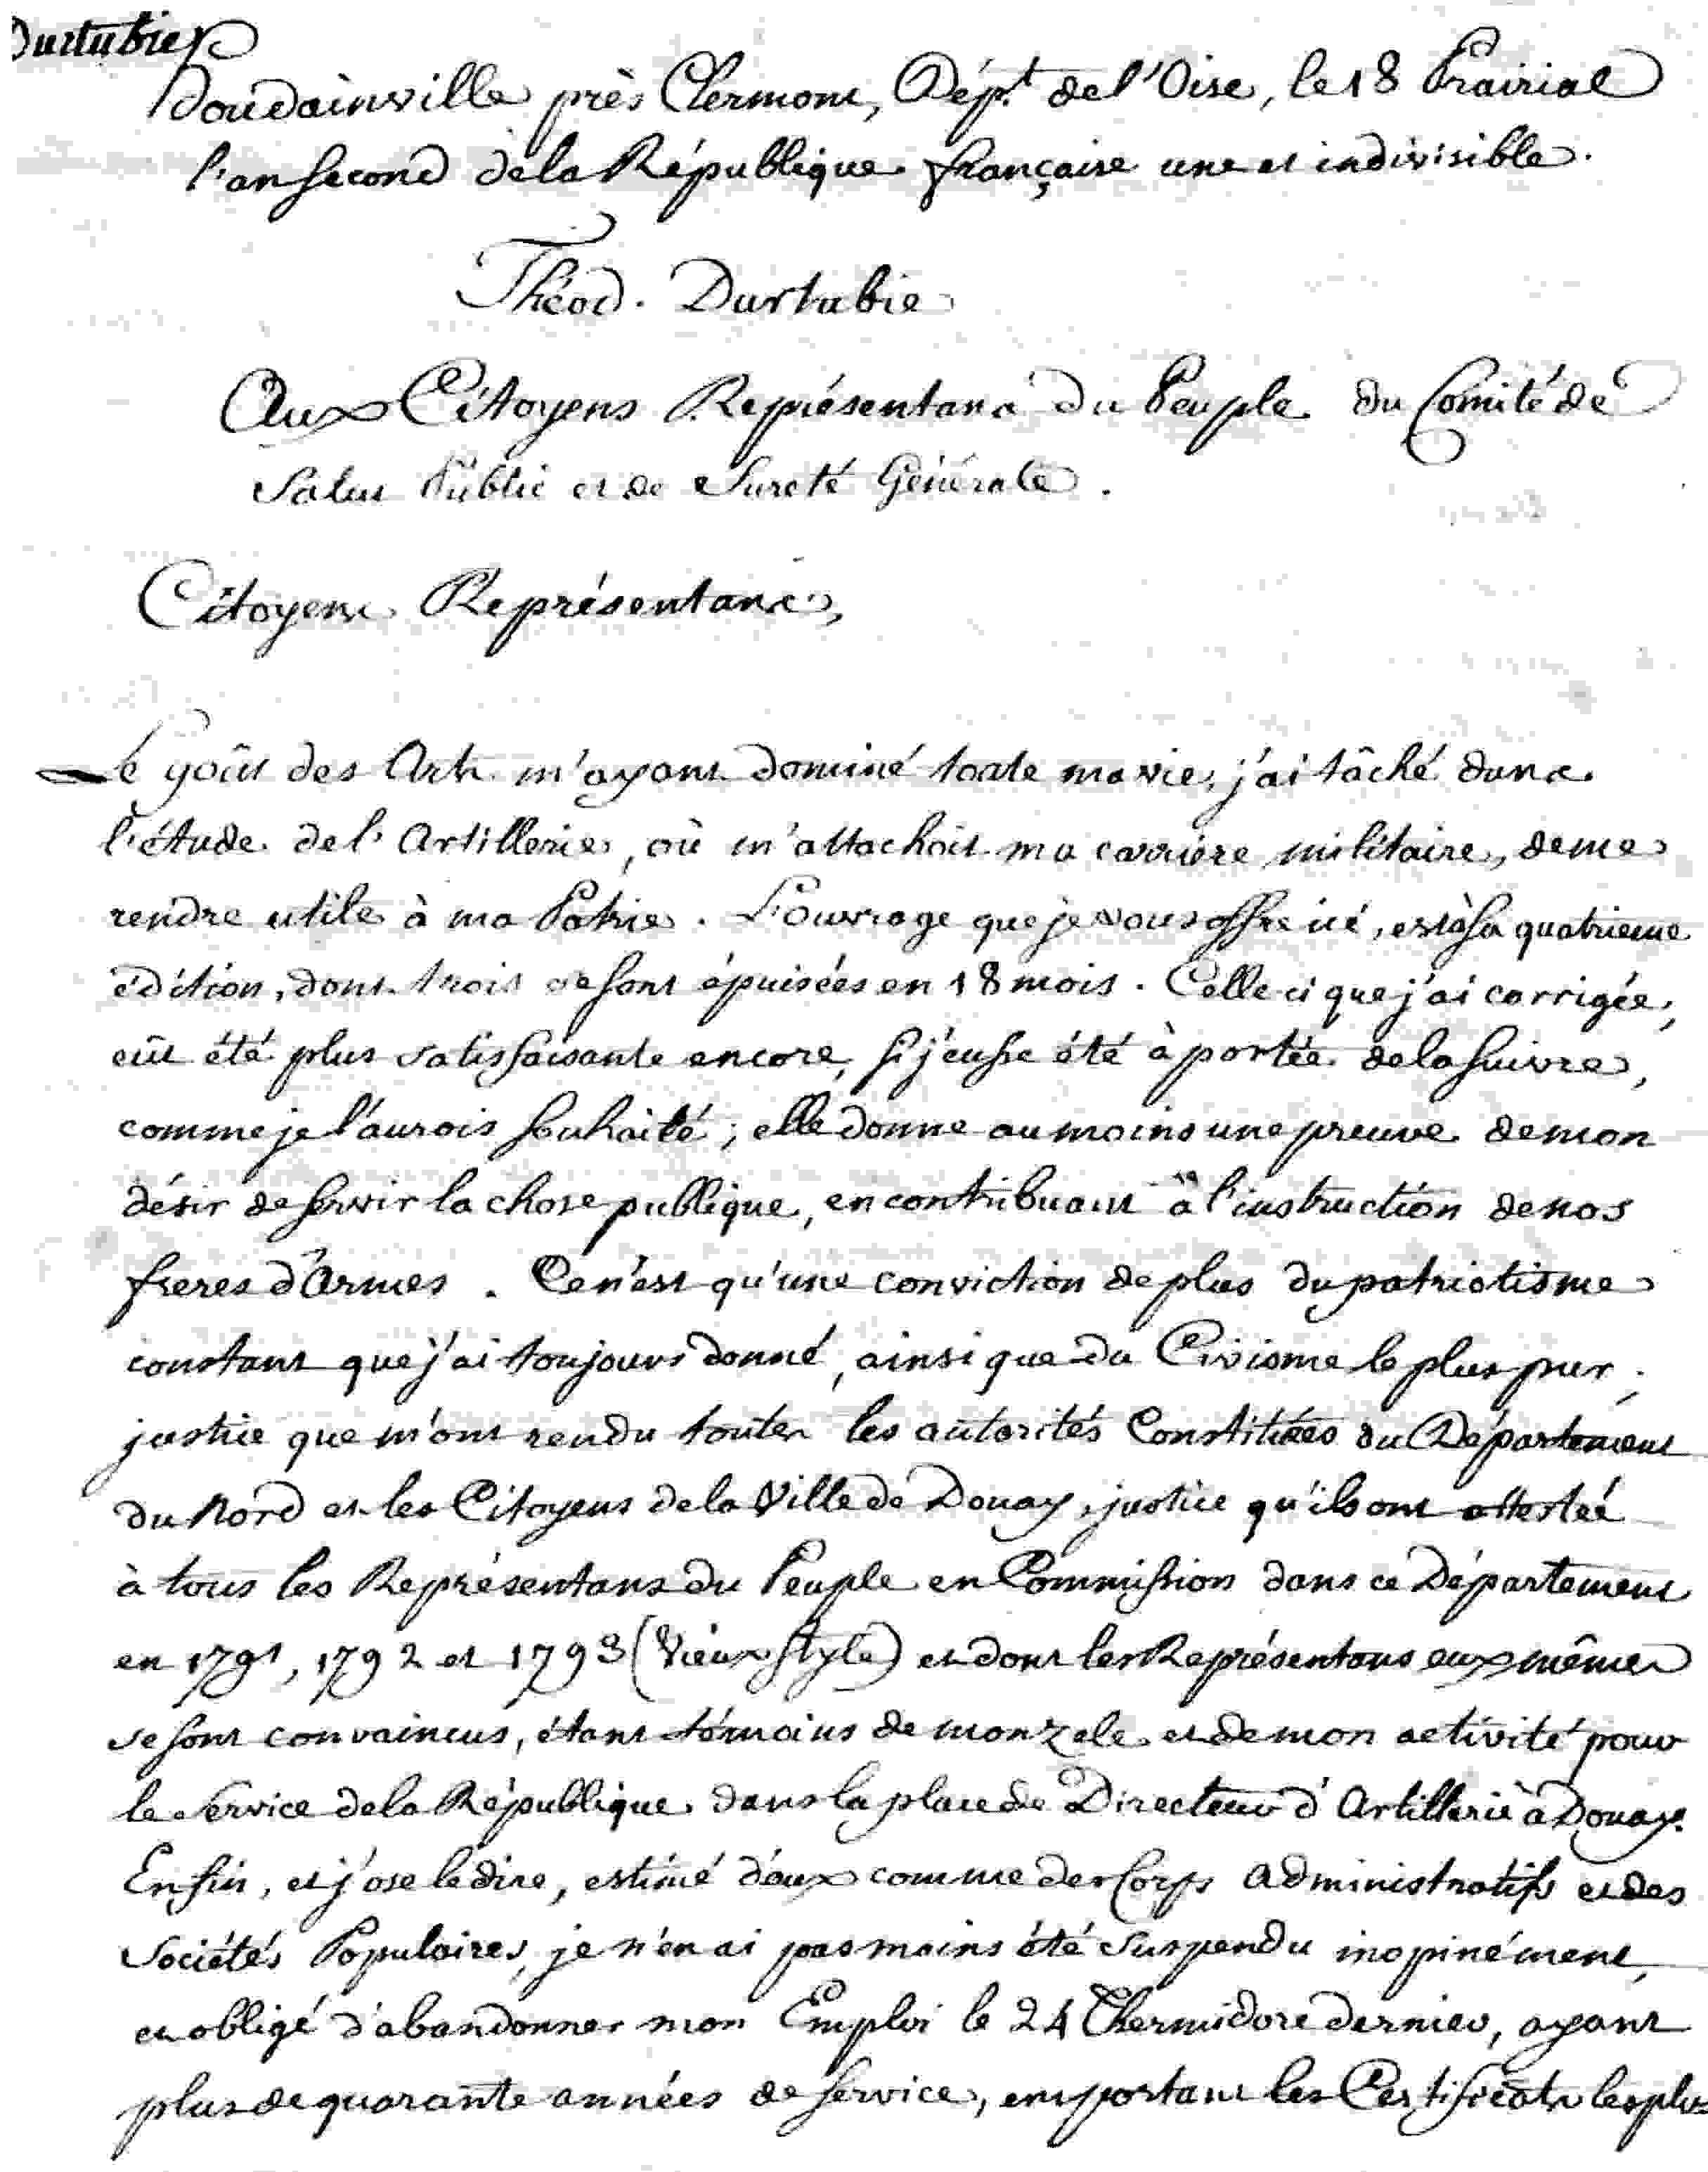 Durtubie
Doudainville près Clermont, Dépt. de l'Oise, le 18 Prairial
l'an second de la République française une et indivisible.
Théod. Durtubie
Aux Citoyens Représentans du Peuple du Comité de
Salut Public et de Sureté Générale.
Citoyens Représentans,
Le goût des Arts m'ayant dominé toute ma vie, j'ai tâché dans
l'étude de l'Artillerie, où m'attachoit ma carriere militaire, de me
rendre utile à ma Patrie. L'ouvrage que je vous offre ici, est à sa quatrieme
édition, dont trois se sont épuisées en 18 mois. Celle ci que j'ai corrigée,
eût été plus satisfaisante encore, si j'eusse été à portée de la suivre,
comme je l'aurois souhaité; elle donne au moins une preuve de mon
désir de servir la chose publique, en contribuant à l'instruction de nos
freres d'Armes. Ce n'est qu'une conviction de plus du patriotisme
constant que j'ai toujours donné, ainsi que du Civisme le plus pur;
justice que m'ont rendu toutes les autorités Constituées du Département
du Nord et les Citoyens de la Ville de Douay, justice qu'ils ont attestée
à tous les Représentans du Peuple en Commission dans ce Département
en 1791, 1792 et 1793 (Vieux style) et dont les Représentans eux mêmes
se sont convaincus, étant témoins de mon zele et de mon activité pour
le service de la République dans la place de Directeur d'Artillerie à Douay.
Enfin, et j'ose le dire, estimé d'eux comme des Corps administratifs et des
Sociétés Populaires, je n'en ai pas moins été suspendu inopinément,
et obligé d'abandonner mon Emploi le 24 Thermidore dernier, ayant
plus de quarante années de service, emportant les Certificats les plus